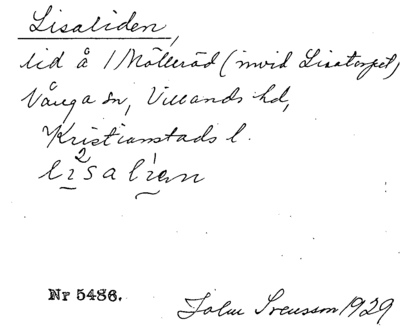 Lisaliden,
lid å 1 Mölleröd (invid Lisatorpet)
Vånga sn, Villands hd,
Kristianstads l.
li2salían
Nr 5486.
John Svensson 1929